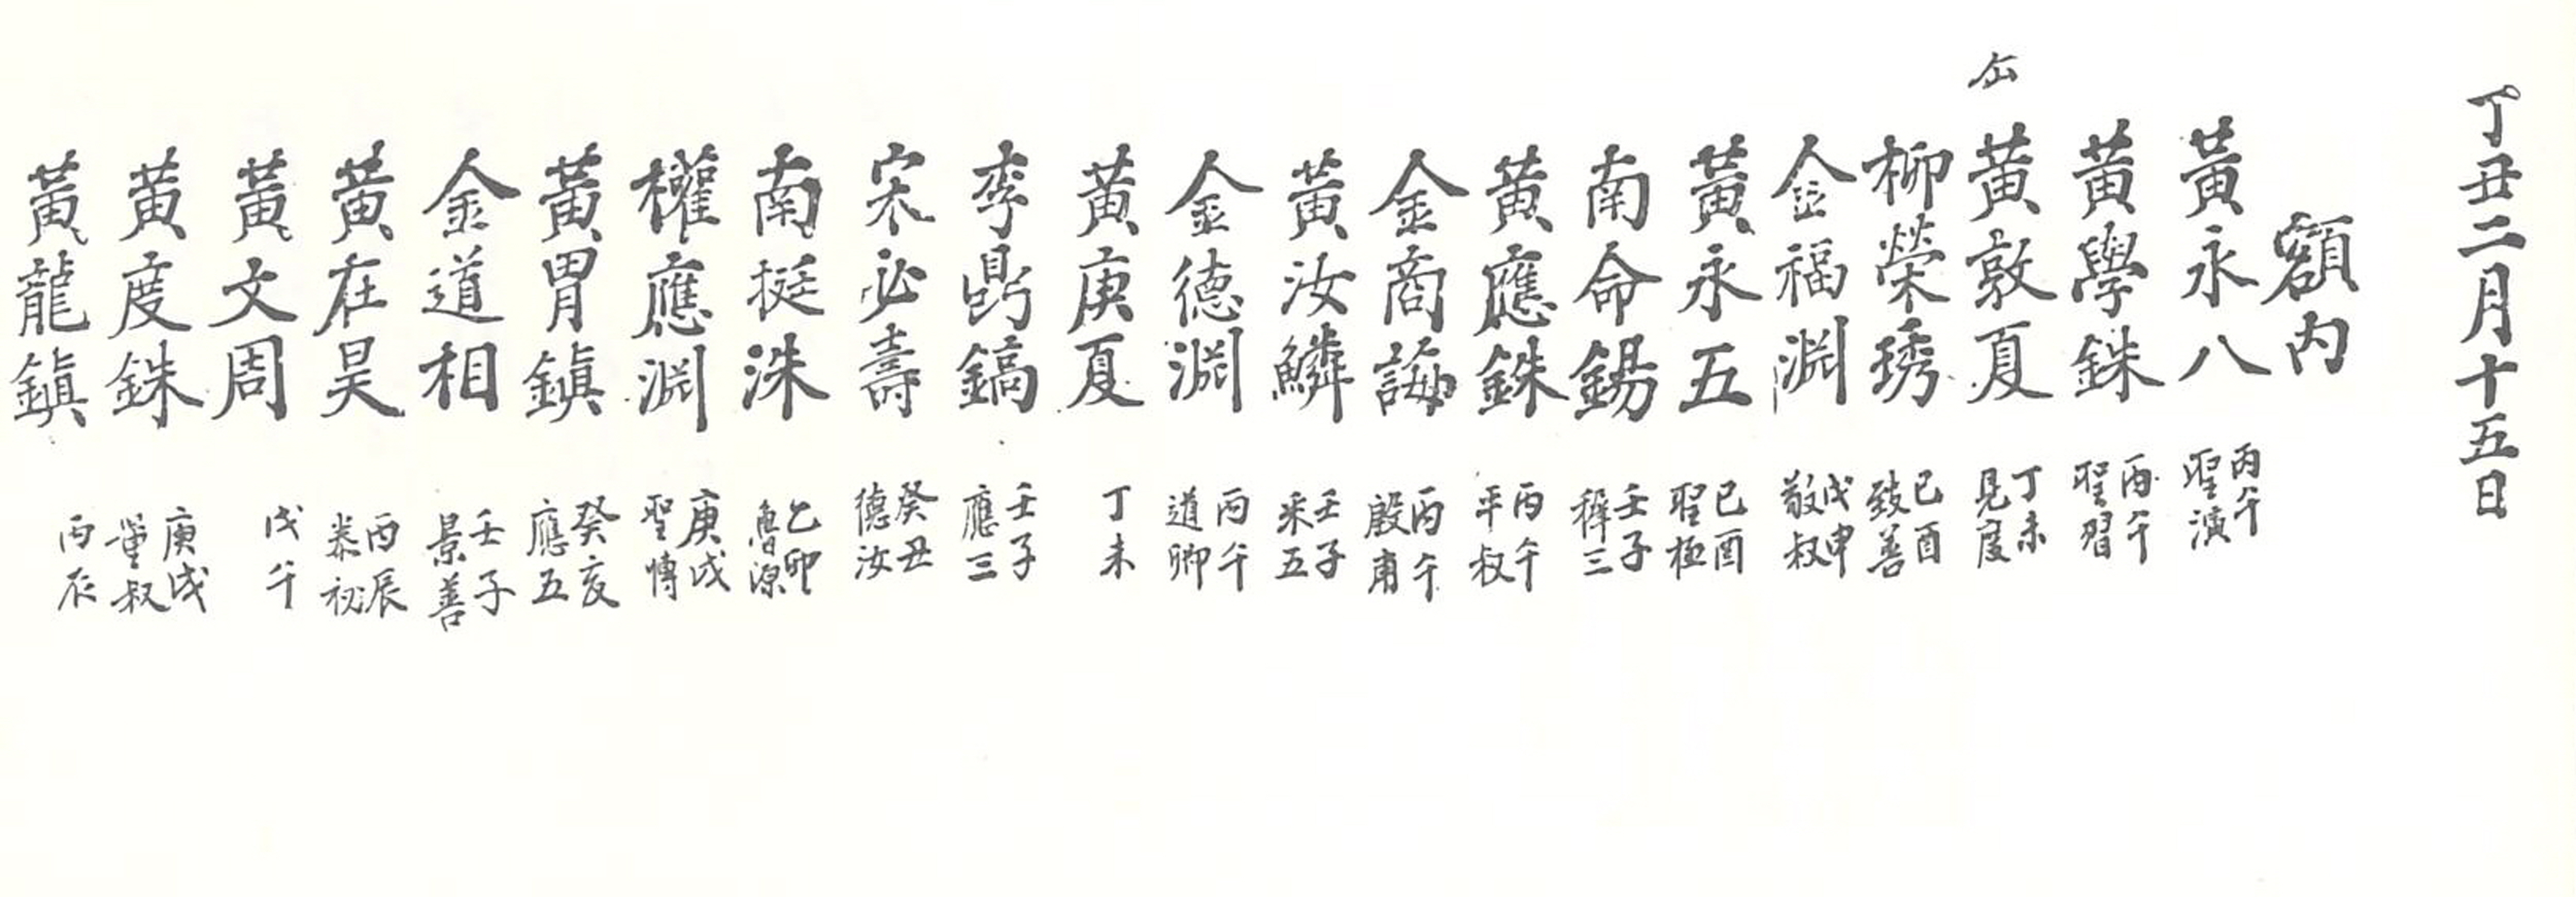 丁丑二月十五日
額內
黃永八 丙午 聖演
黃學銖 丙午 聖習
黃敦夏 丁未 見度
柳榮琇 己酉 致善
金福淵 戊申 敬叔
黃永五 己酉 聖極
南命錫 壬子 穉三
黃應銖 丙午 平叔
金商誨 丙午 殷甫
黃汝鱗 壬子 采五
金德淵 丙午 道卿
黃庚夏 丁未
李鼎鎬 壬子 應三
宋必壽 癸丑 德汝
南挺洙 乙卯 魯源
權應淵 庚戌 聖博
黃胃鎭 癸亥 應五
金道相 壬子 景善
黃在昊 丙辰 泰初
黃文周 戊午
黃度銖 庚戌 叔
黃龍鎭 丙辰